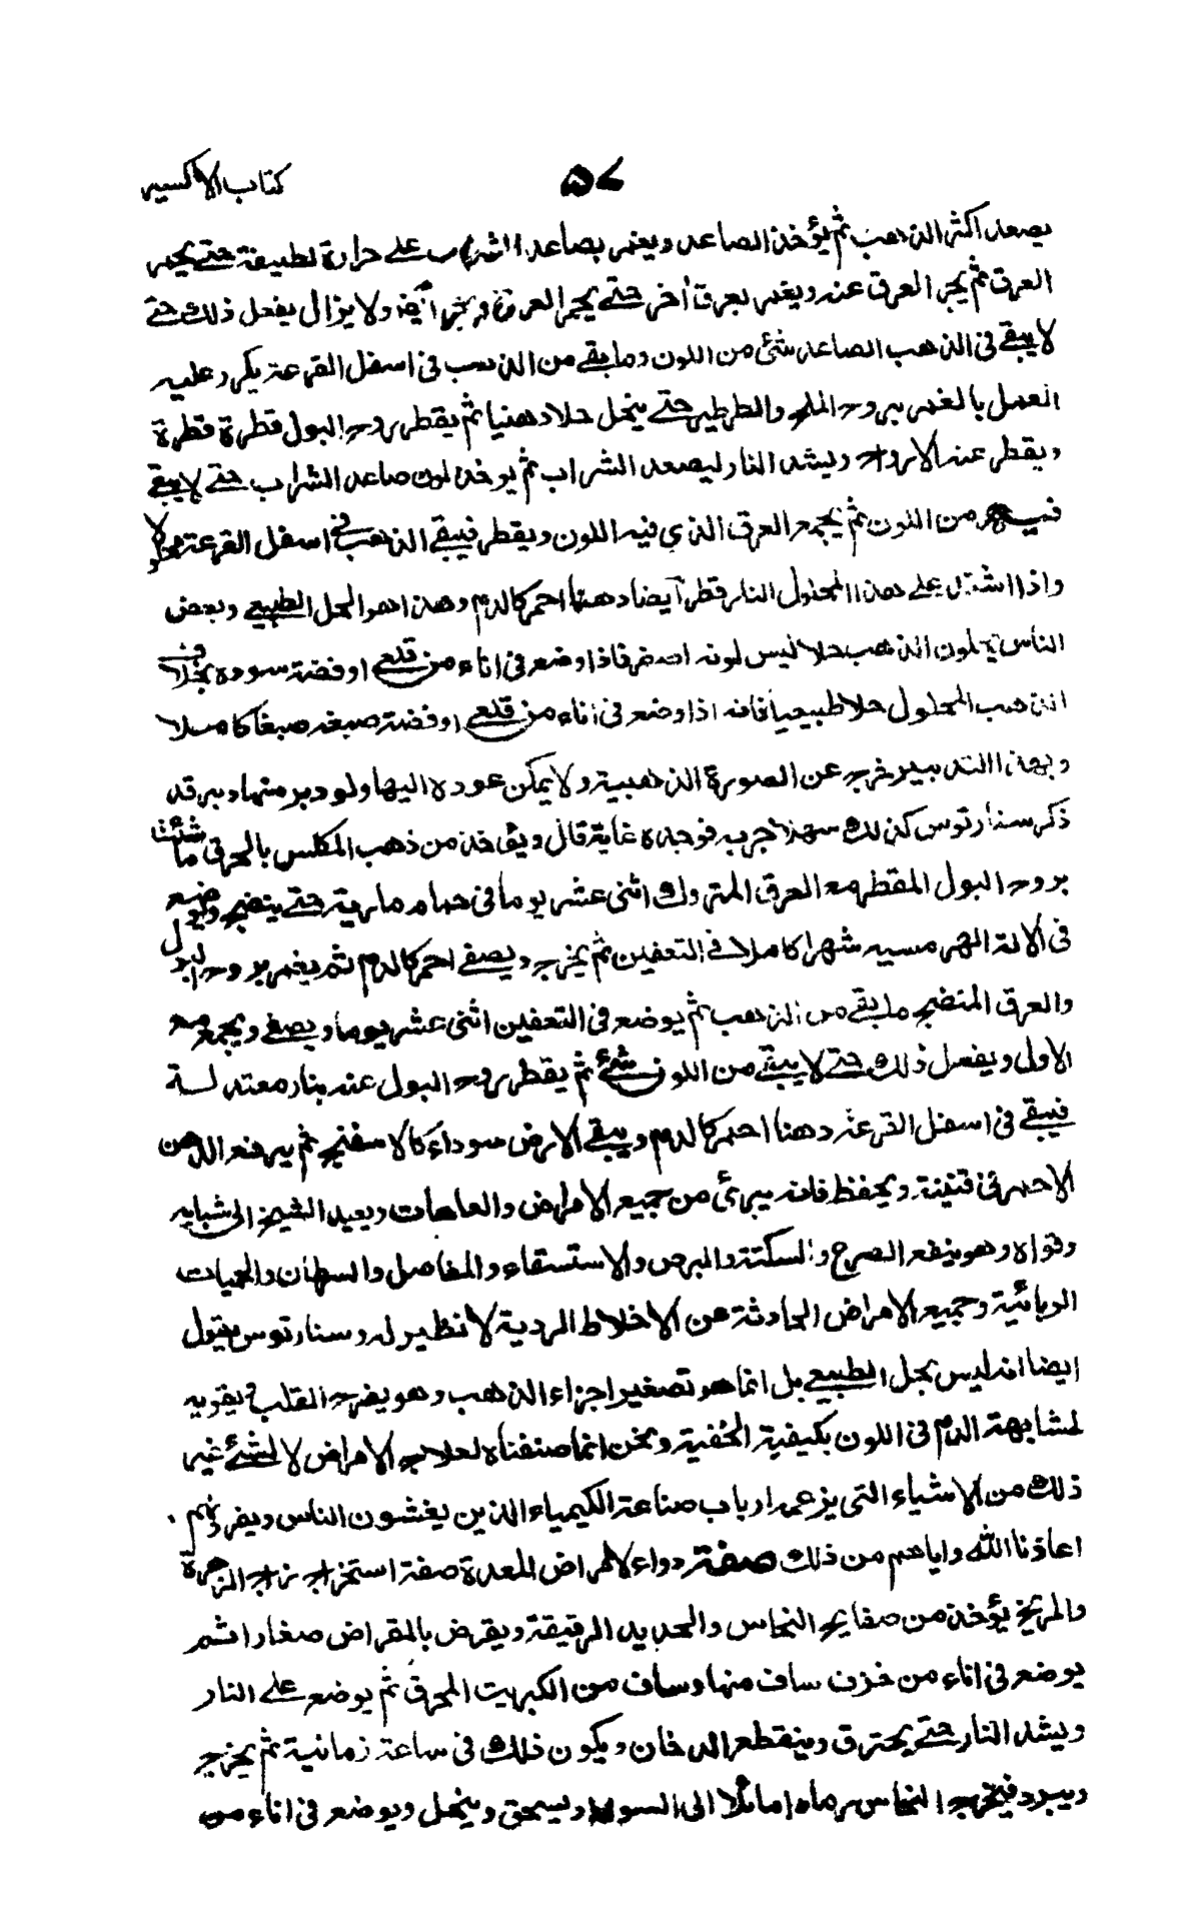 كتاب الاكسير ٥٧
يصعد اكثر الذهب ثم يؤخذ الصاعد ويغمر بصاعد الشراب على حرارة لطيفة حتے يحمر
العرق ثم يجر العرق عنه ويغمر بعرق أخر حتے يحمر العرق ويجر ايضا ولا يزال يفعل ذلك حتے
لا يبقے فى الذهب الصاعد شئ من اللون وما بقے من الذهب فى اسفل القرعة يكرر عليه
العمل بالغمر بروح الملح والطرطير حتے ينحل حلا دهنيا ثم يقطر بروح البول قطرة قطرة
ويقطر عنه الارواح ويشد النار ليصعد الشراب ثم يوخذ لون صاعد الشراب حتے لا يبقے
فيه من اللون ثم يجمع العرق الذي فيه اللون ويقطر فيبقے الذهب فى اسفل القرعة
واذا اشتد على هذا المحلول النار قطر أيضا دهنا احمر كالدم وهذا هو الحل الطبيعے وبعض
الناس يحلون الذهب حلا ليس لونه احمر فاذا وضع فى اناء من قلعے او فضة سوده بخلاف
الذهب المحلول حلا طبيعيا فانه اذا وضع فى اناء من قلعے او فضة صبغه صبغا كاملا
وبهذا التدبير خرج عن الصورة الذهبية ولا يمكن عوده اليها ولو دبر منها دبر قد
ذكر سنارتوس كذلك جربه فوجده غاية قال ويؤخذ من ذهب المكلس بالحرق ما شئت
بروح البول المقطر مع العرق المتروك اثنى عشر يوما فى حمام مارية حتے ينضج ويوضع
فى الالة الهرمسيه شهرا كاملا فے التعفين ثم يخرج ويصفے احمر كالدم ثم يغمر بروح البول
والعرق المنضج ما بقے من الذهب ثم يوضع فى التعفين اثنى عشر يوما ويصفے ويجمع مع
الاول ويفعل ذلك حتے لا يبقے من اللون شئ ثم يقطر بروح البول عنه بنار معتدلة
فيبقے فى اسفل القرعة دهنا احمر كالدم ويبقے الارض سوداء كالاسفنج ثم يرفع الدهن
الاحمر فى قنينة ويحفظ فانه يبرئ من جميع الامراض والعاهات ويعيد الشيخ الى شبابه
وقواه وهو ينفع الصرع والسكتة والبرص والاستسقاء والمفاصل والسرطان والحميات
الوبائية وجميع الامراض الحادثة من الاخلاط الردية لا نظير له وسنارتوس يقول
ايضا انه ليس بحل الطبيعے بل انما هو تصغير اجزاء الذهب وهو يفرح القلب ويقويه
لمشابهة الدم فى اللون بكيفية الخفية ونحن انما صنفناه لعلاج الامراض لا لشئ غير
ذلك من الاشياء التى يزعم ارباب صناعة الكيمياء الذين يغشون الناس ويغرونهم
اعاذنا الله واياهم من ذلك صفة دواء لامراض المعدة صفة استخراج زاج الزهرة
والمريخ يؤخذ من صفايح النحاس والحديد الرقيقة ويقرض بالمقراض صغارا ثم
يوضع فى اناء من خزف ساف منها وساف من الكبريت المحرق ثم يوضع على النار
ويشد النار حتے يحترق وينقطع الدخان ويكون ذلك فى ساعة زمانية ثم يخرج
ويبرد فيخرج النحاس رمادا مائلا الى السواد ويسحق وينخل ويوضع فى اناء من